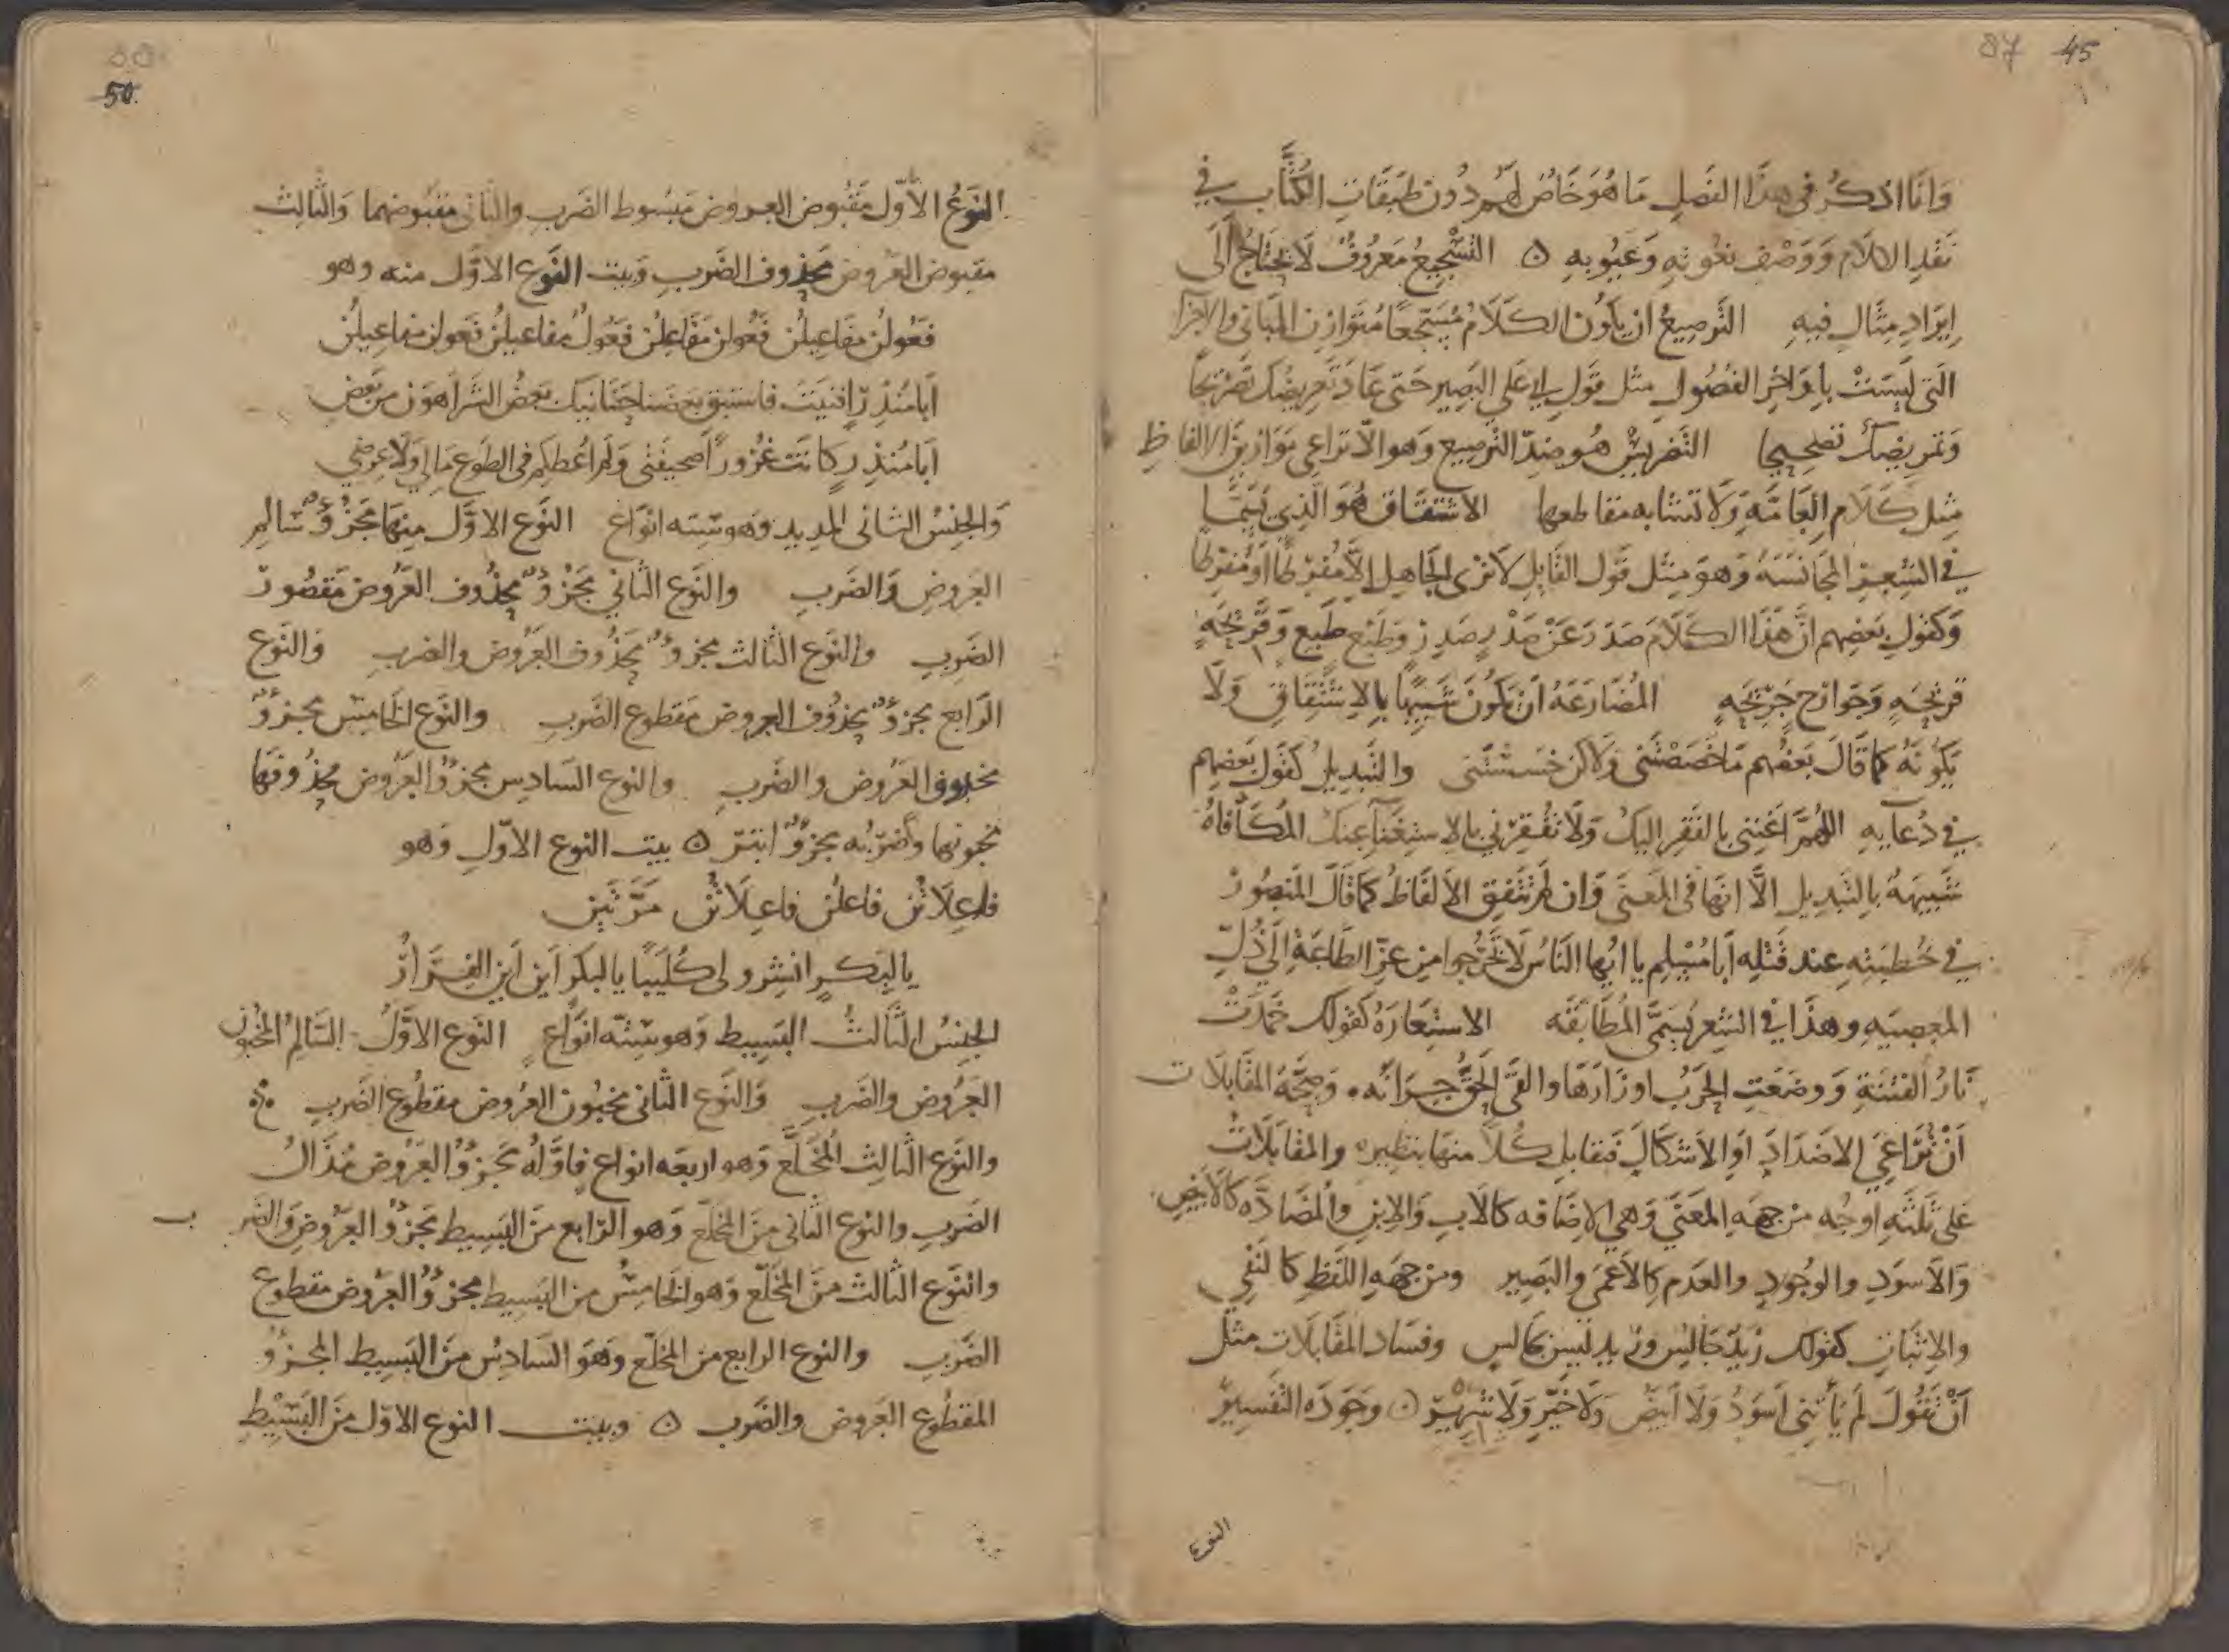 87 45
وَانَا اذكُرُ فى هذا الفَصلِ مَا هُوَ خَاصٌ لهُم دُونَ طبَقَاتِ الكُتَّابِ في
نَقْدِ الكلَام وَوَصْفِ نعُوتِهِ وَعيُوبِهِ ۞ التَسْجِيعُ مَعرُوفٌ لَا يحتَاجُ الَى
اِيرَادِ مِثَالٍ فيهِ الترصيعُ ان يكُون الكَلَامُ مُسَجّعًا مُتَوَازِن المبَانى والاجزا
التى ليسَتْ بأَوَاخِرِ الفصُولِ مثل قَولِ ابى على البَصِير حَتى عَادَ تَعرِيضُكَ تَصْريحًا
وَتمريضُكَ تصحِيحا التَضريسُ هُو ضِدّ الترصِيع وَهو الّا تراعى توَازن الالفاظِ
مِثل كَلَام العَامَّةِ وَلَا تتشابه مقاطعها الاشتقاق هُوَ الَّذِى يُسَمَّا
في الشِعرِ المجَانسَهُ وَهوَ مِثل قَول القَايلِ لَا ترى الجَاهِل الّا مُفرِطًا اَو مُفرّطا
وَكَقولِ بَعضِهم انَّ هَذَا الكَلَامَ صَدَرَ عَنْ صَدْرٍ صَدِرٍ وطَبْع طَبِعٍ وَقَريحَهٍ
قَرِيحَهٍ وَجَوَارح جَرِيحَهٍ المُضَارَعَةُ اَنْ يكُونَ شَبِيهًا بِالاشتِقَاقِ وَلَا
يَكُونَهُ كَمَا قَالَ بَعضُهم مَا خَصَصْتَنى وَلَاكن خسَسْتَنى والتَبدِيلُ كَقَولِ بَعضِهم
في دُعَايِهِ اللهُمَّ اغنِنى بالفَقرِ اليكَ وَلَا تفْقِرْنى بالاستِغنَاءِ عنكَ المكَافَاهُ
شبِيهَةٌ بالتَبدِيل الَّا انهَا فى المعنَى وَان لم تتّفِق الالفَاظُ كمَا قالَ المَنصُورُ
في خُطبَتِهِ عِند قَتْلِه اَبَا مُسْلِم يا ايها الناسُ لَا تخرُجوا من عِزّ الطاعَةِ الَى ذُلّ
المعصيَةِ وهذَا في الشِعر يُسَمَّى المُطَابَقَه الاستِعَارَهُ كَقولك خَمَدَتْ
نَارُ الفتنَةِ وَوضعَتِ الحَرْبُ اوزَارَهَا والقَى الحَقُّ جِرَانَه ۰ وصِحَّهُ المقَابَلات
اَنْ تُرَاعِيَ الاضدَادَ اَوِ الاَشكَالَ فَتقابل كُلًا منهَا بنَظِيره والمقَابَلَاتُ
عَلى ثَلثَهِ اوجُه مِن جِهَهِ المَعنَى وَهِيَ الاضَافه كَالاب والابنِ والمضادَّه كالابيَضِ
وَالاَسوَدِ والوُجُودِ والعَدم كالاعمَى والبَصِير ومِن جهَه اللفظِ كالنَفْيِ
والاِثبَاتِ كَقولكَ زَيدٌ جَالسٌ وزَيد ليسَ بجَالس وفسَاد المقَابَلَات مثلُ
اَنْ تَقُولَ لَم يَأتِنى اَسوَدُ وَلَا اَبيَضُ وَلَا خَيّر وَلَا شِرِّير ۞ وجَودَه التَفسِير
النوع
50
النَوعُ الاَوّلُ مَقْبُوض العَروض مَبسُوط الضَربِ والثانى مقبُوضهما وَالثالث
مقبوض العَروض محذوف الضَربِ وَبيت النَوع الاوّل منه وهو
فَعُولُن مفَاعيلُن فَعُولن مَفَاعِلُن فَعُولُ مفاعيلُن فَعولن مفاعِيلُن
اَبَا مُنذِرٍ اَفنَيتَ فاستَبق بعضنَا حَنَانيك بَعضُ الشَرّ اَهوَن من بَعضِ
اَبَا مُنذِرٍ كانَت غرُورًا صحيفتى وَلَم اُعطِكم فى الطَوع مَالِى وَلَا عِرضِى
وَالجِنسُ الثانى المدِيد وَهو ستّه انوَاع النَوع الاوّل مِنهَا مَجزُوٌّ سَالِم
العَروضِ وَالضَربِ والنَوع الثَاني مَجزُوٌّ محذُوف العَروض مَقصُور
الضَربِ والنَوع الثالث مجزوٌّ محذُوف العَروض والضَربِ وَالنَوع
الرّابع مجزوٌّ محذُوف العروض مَقطوع الضَربِ والنَوع الخَامِسُ مجزوٌّ
مخبون العَروض والضَربِ والنوع السَادِس مجزوُّ العَروض محذوفهَا
مخبونها وضَربُه مجزوٌّ ابتَر ۞ بيت النوع الاوّلِ وَهو
فاعِلَاتُن فاعلُن فاعِلَاتُن مَرَّتَين
يا لبَكرٍ انشِرو لى كُلَيبًا يا لبَكر اين اَين الفِرَارُ
الجِنسُ الثَالثُ البَسِيط وَهو ستّه انوَاع النَوع الاوَّلُ السَالِمُ المخبُون
العَروض والضَربِ وَالنَوع الثَانى مخبُون العَروض مقطُوع الضَربِ
والنَوع الثالِث المُخَلَّع وَهو اربعَه انواع فاوّلُهُ مجزوُّ العَرُوض مُذَالُ
الضَربِ والنوع الثَانى مِنَ المخلّع وَهو الرّابع مِنَ البَسِيط مَجزوُّ العَروضِ والضرب
والنَوع الثالث مِنَ المُخَلّع وَهو الخَامِسُ من البَسيط مجزوُّ العَروض مقطوع
الضَربِ والنوع الرابع من المخلّع وَهوَ السَادِسُ مِنَ البَسِيط المجزوُّ
المقطُوع العَروض والضَرب ۞ وبيت النوع الاوّل مِنَ البَسِيْطِ